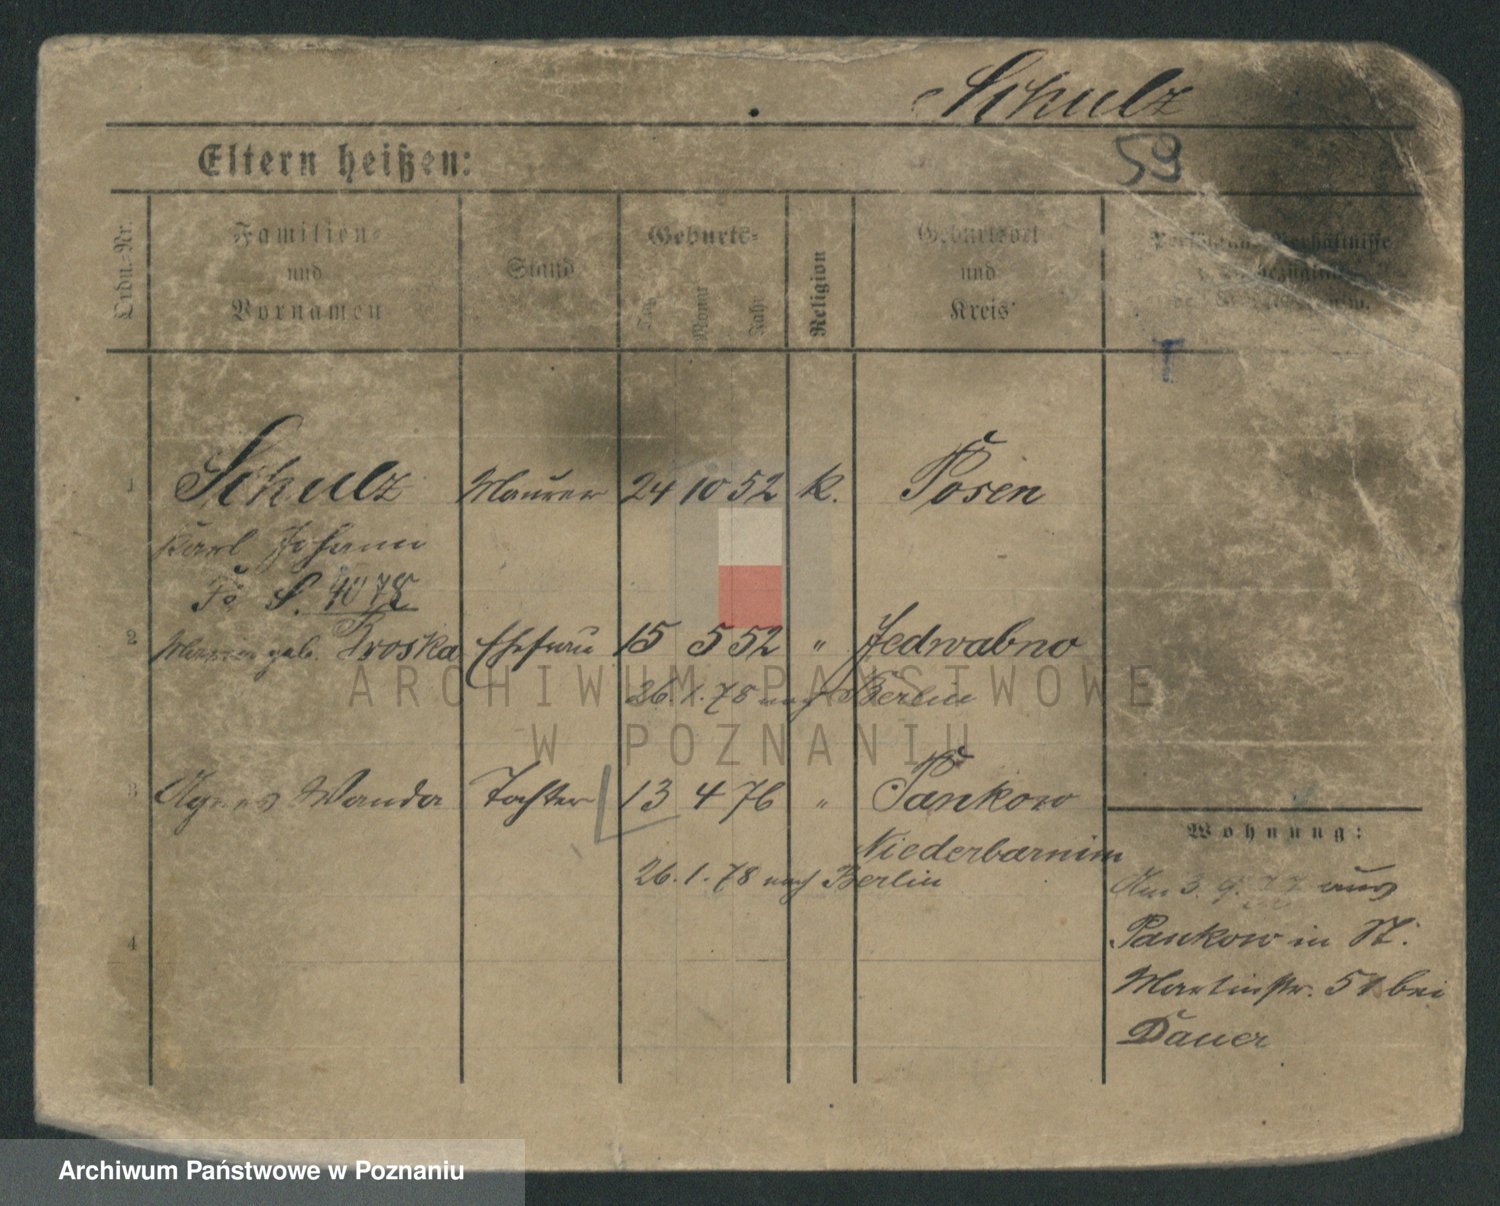 Schulz
Eltern heißen:
59
Ordn.-Nr.
Familien-
und
Vornamen
Stand
Geburts-
Tag
Monat
Jahr
Religion
Geburtsort
und
Kreis
1 Schulz Maurer 24 10 52 k. Posen
Karl Johann
S. 4078
2 geb. Proska Ehefrau 15 5 52 " Jedwabno
26. 1. 78 nach Berlin
3 Agnes Wanda Tochter 13 4 76 " Pankow
Niederbarnim
26. 1. 78 nach Berlin
4
Wohnung:
Am 3. 9. 77 aus
Pankow in St.
Martinstr. 51 bei
Dauer
ARCHIWUM PAŃSTWOWE
W POZNANIU
Archiwum Państwowe w Poznaniu